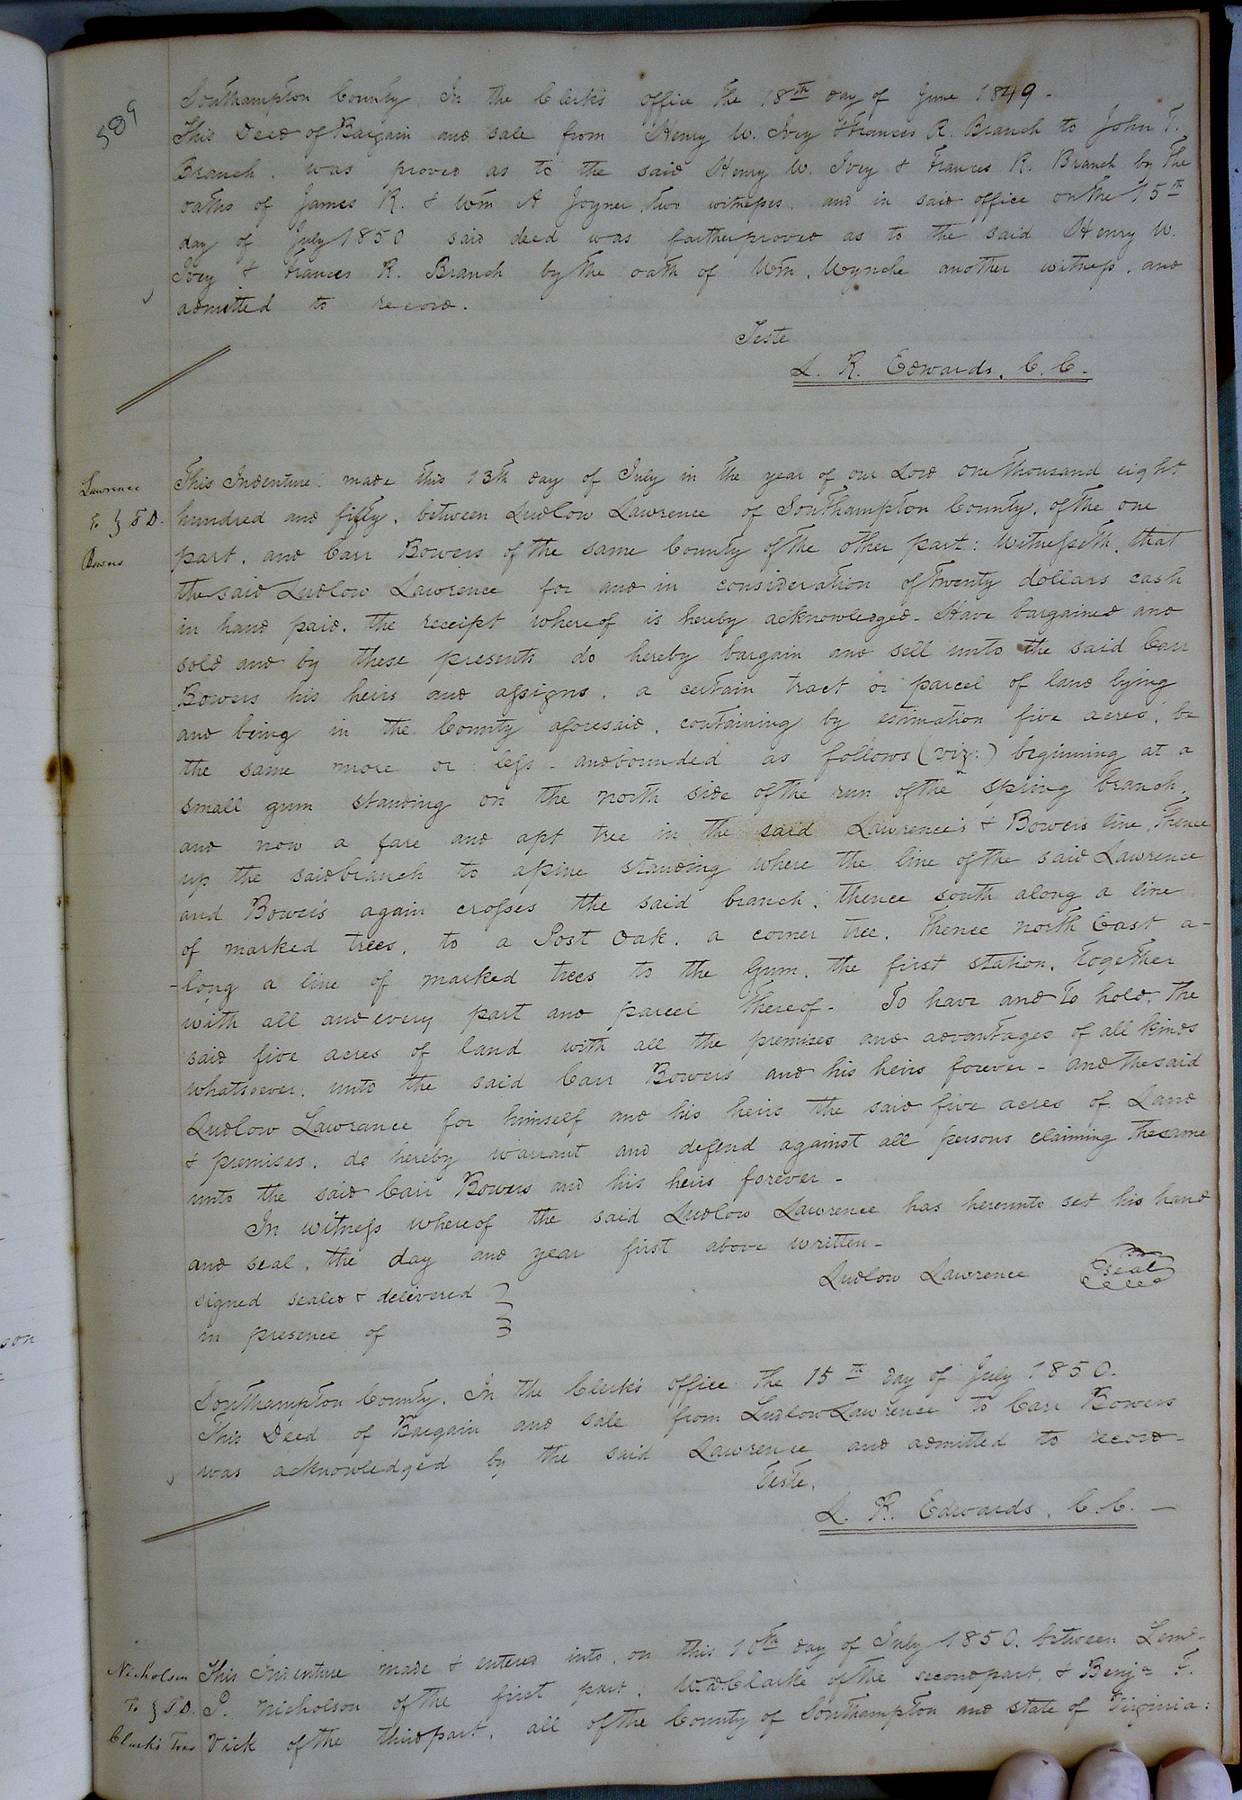 589
Southampton County. In the Clerk's office the 18th day of June 1849.
This Deed of Bargain and sale from Henry W. Ivey & Frances R. Branch to John T.
Branch, was proved as to the said Henry W. Ivey & Frances R. Branch by the
oaths of James R. & Wm A Joyner, two witnesses, and in said office on the 15th
day of July 1850 said deed was farther proved as to the said Henry W.
Ivey & Frances R. Branch by the oath of Wm. Wynde another witness, and
admitted to record.
Teste
L. R. Edwards, C. C.
Lawrence
to } T D.
Bowers
This Indenture: made this 13th day of July in the year of our Lord one thousand eight
hundred and fifty, between Ludlow Lawrence of Southampton County, of the one
part, and Carr Bowers of the same County of the other part: Witnesseth, that
the said Ludlow Lawrence for and in consideration of twenty dollars cash
in hand paid, the receipt whereof is hereby acknowledged. Have bargained and
sold and by these presents do hereby bargain and sell unto the said Carr
Bowers his heirs and assigns, a certain tract or parcel of land lying
and being in the County aforesaid, containing by estimation five acres, be
the same more or less - and bounded as follows (viz:) beginning at a
small gum standing on the north side of the run of the spring branch,
and now a fare and apt tree in the said Lawrence's & Bowers line, Thence
up the said branch to a pine standing where the line of the said Lawrence
and Bowers again crosses the said branch, thence south along a line
of marked trees, to a Post Oak, a corner tree, Thence north East a-
-long a line of marked trees to the Gum, the first station, Together
with all and every part and parcel thereof. To have and to hold, the
said five acres of land with all the premises and advantages of all kinds
whatsoever, unto the said Carr Bowers and his heirs forever - and the said
Ludlow Lawrance for himself and his heirs the said five acres of Land
& premises, do hereby warrant and defend against all persons claiming the same
unto the said Carr Bowers and his heirs forever -
In witness whereof the said Ludlow Lawrence has hereunto set his hand
and seal, the day and year first above written -
Ludlow Lawrence seal
signed sealed & delivered }
in presence of }
Southampton County. In the Clerk's office the 15th day of July 1850.
This Deed of Bargain and sale from Ludlow Lawrence to Carr Bowers
was acknowledged by the said Lawrence and admitted to record -
Teste,
L. R. Edwards, C. C. -
Nicholson
to } T D.
Clark's Trus
This Indenture made & entered into, on this 10th day of July 1850, between Leml
P. Nicholson of the first part, W. D. Clarke of the second part, & Benjn F.
Vick of the third part, all of the County of Southampton and state of Virginia:
son